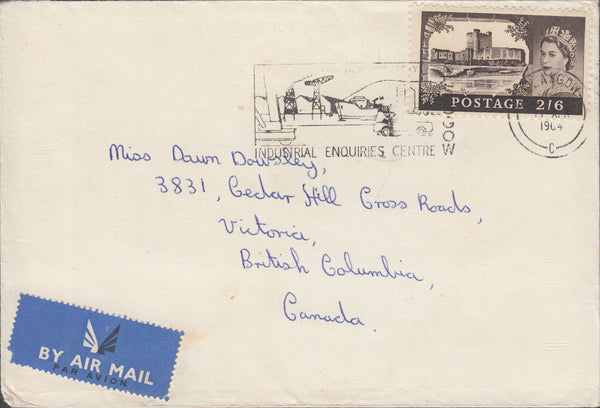 POSTAGE 2/6
1964
C
INDUSTRIAL ENQUIRIES CENTRE
Miss Dawn Dowsley,
3831, Cedar Hill Cross Roads,
Victoria,
British Columbia,
Canada.
BY AIR MAIL
PAR AVION